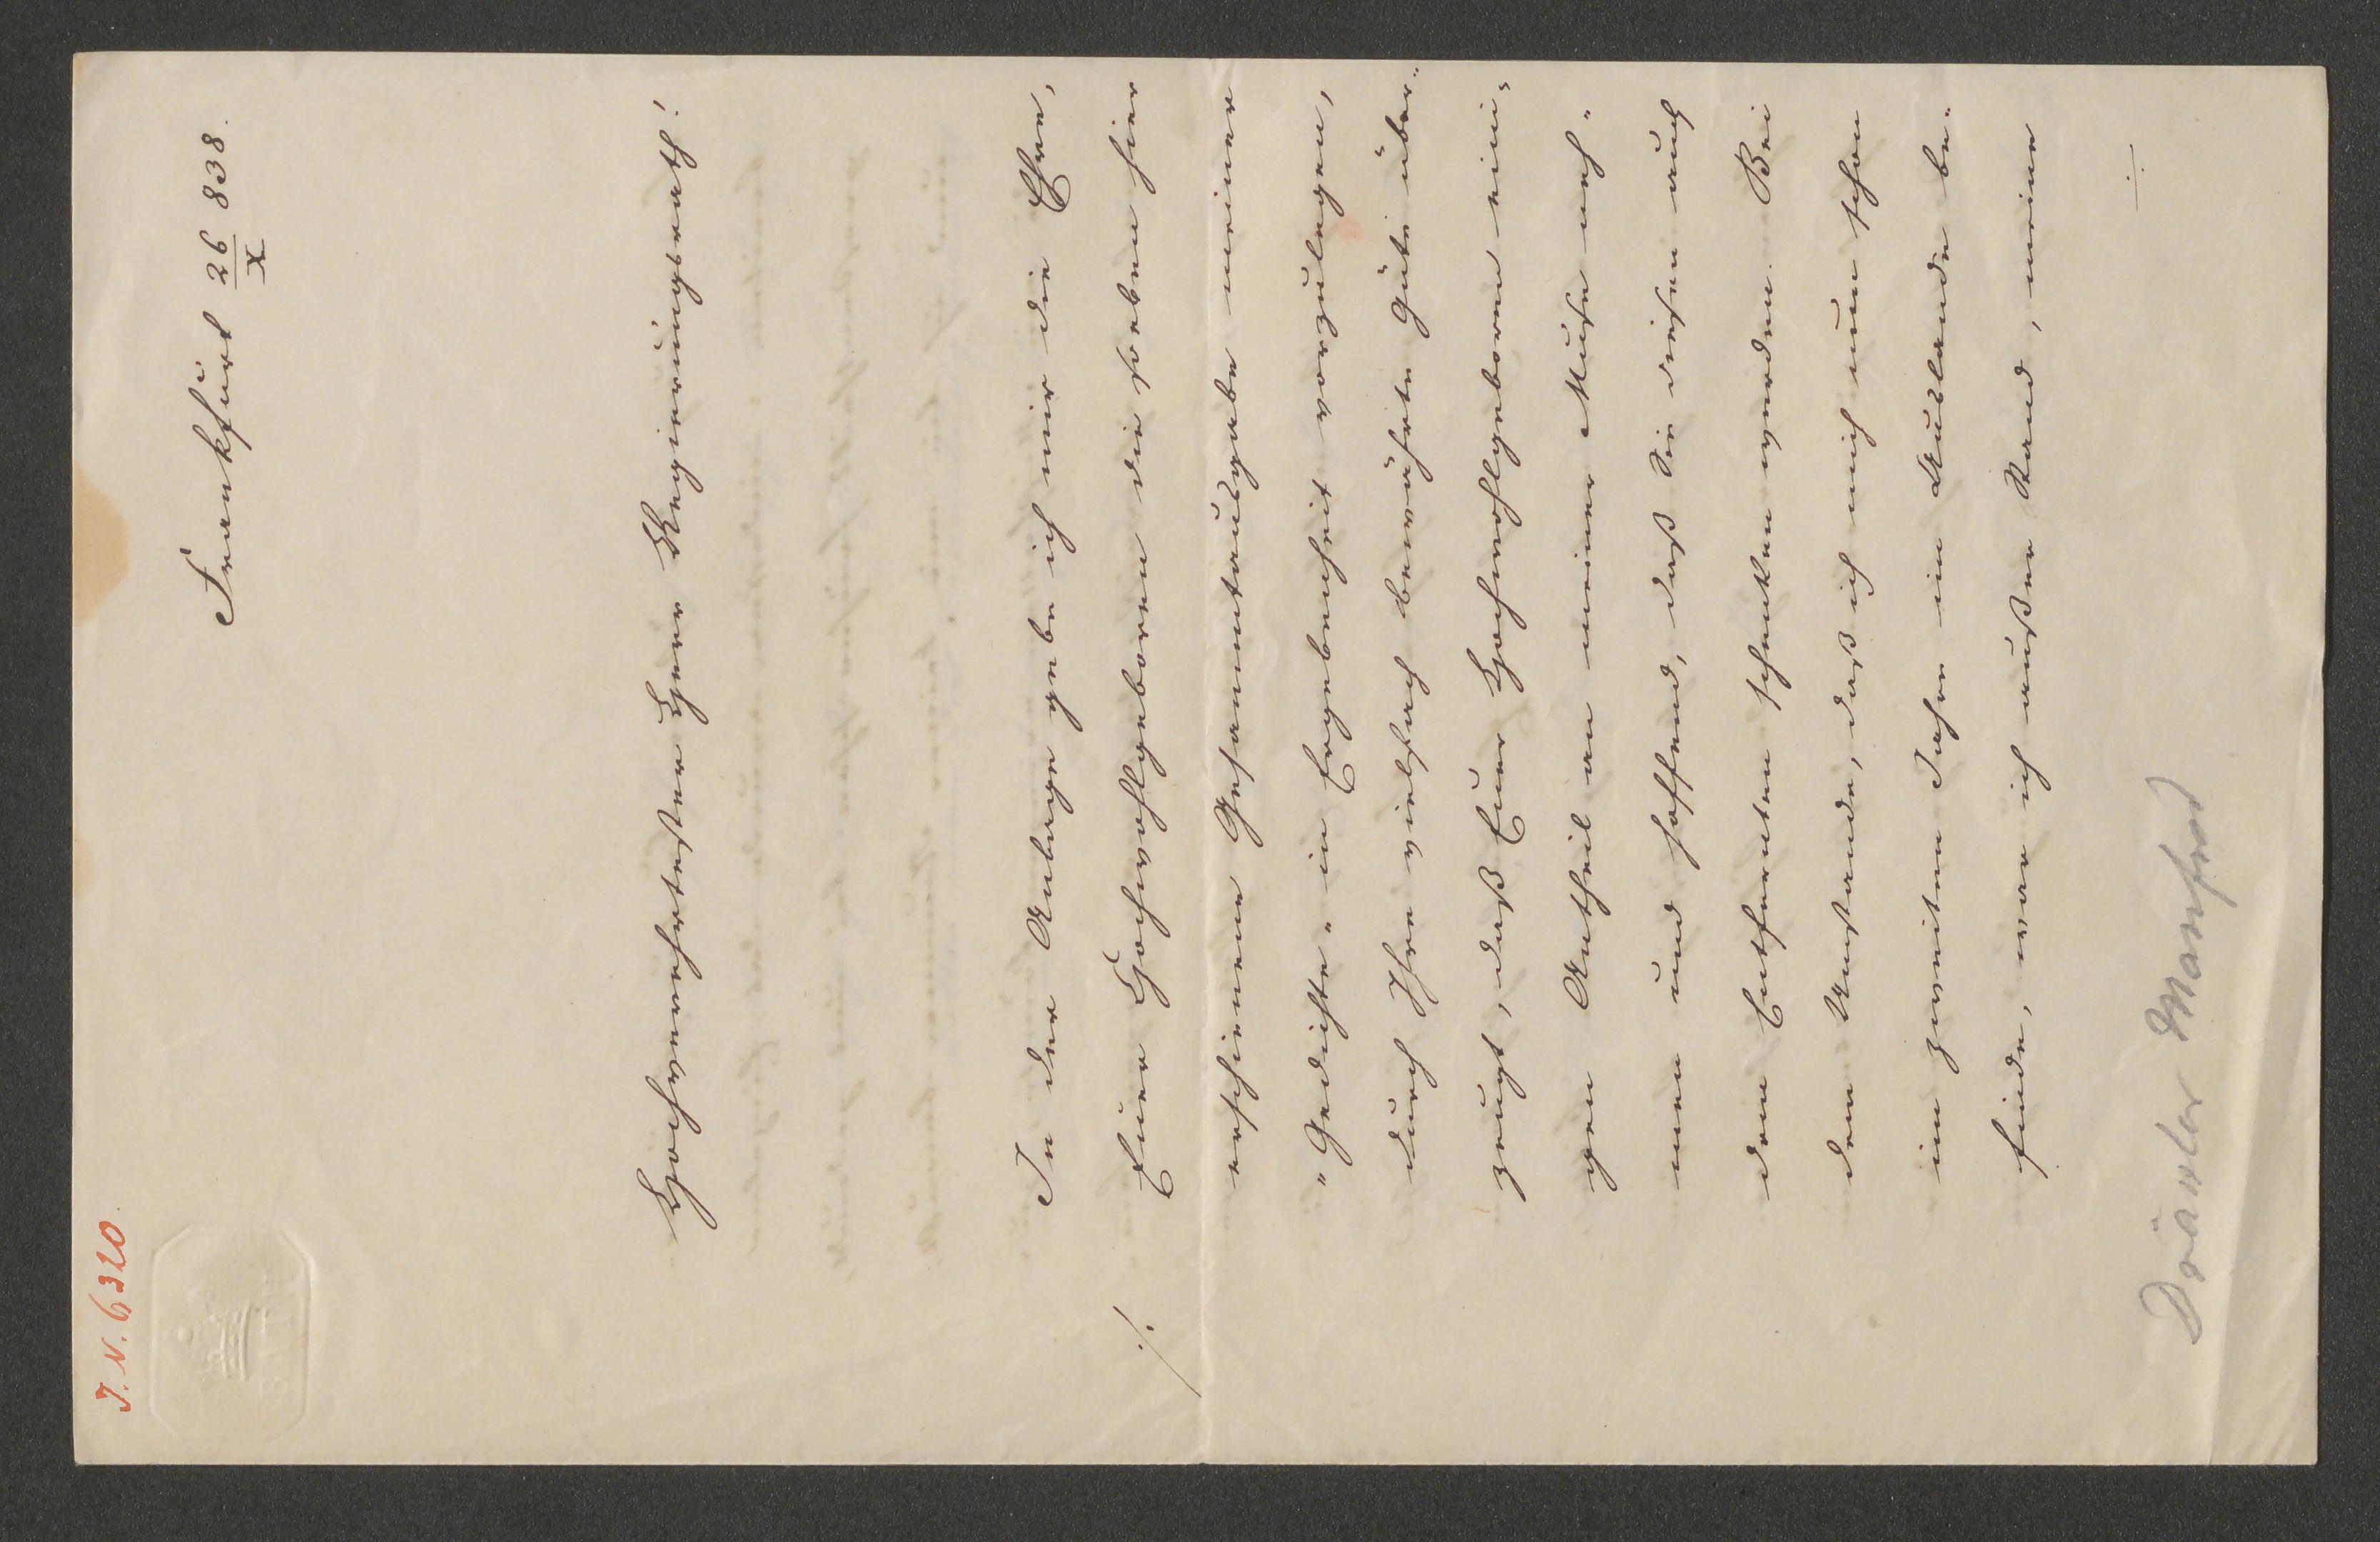 J. N. 6320.
Frankfurt 26/X 838.
Hochverehrtester Herr Regierungsrath!
In der Anlage gebe ich mir die Ehre,
Euer Hochwohlgeboren die soeben hier
erschienene Gesammtausgabe meiner
„Gedichte“ in Ergebenheit vorzulegen,
durch Ihre vielfach bewährte Güte über-
zeugt, daß Euer Hochwohlgeboren eini-
gen Antheil an meiner Muse neh-
men und hoffend, daß Sie diesen auch
dem Entfernten schenken werden. Bei
dem Umstande, daß ich mich nun schon
im zweiten Jahre im Auslande be-
finde, war ich außer Stand, meine
./.
Dräxler Manfred